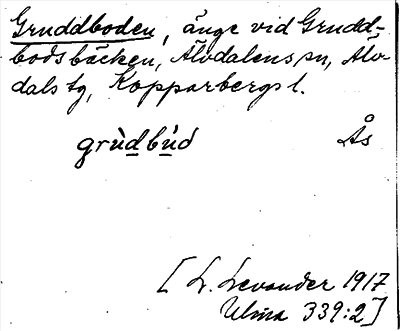 Gruddboden, änge vid Grudd-
bodsbäcken, Älvdalens sn, Älv-
dals tg, Kopparbergs l.
grùdbùd Ås
[L. Levander 1917
Ulma 339:2]